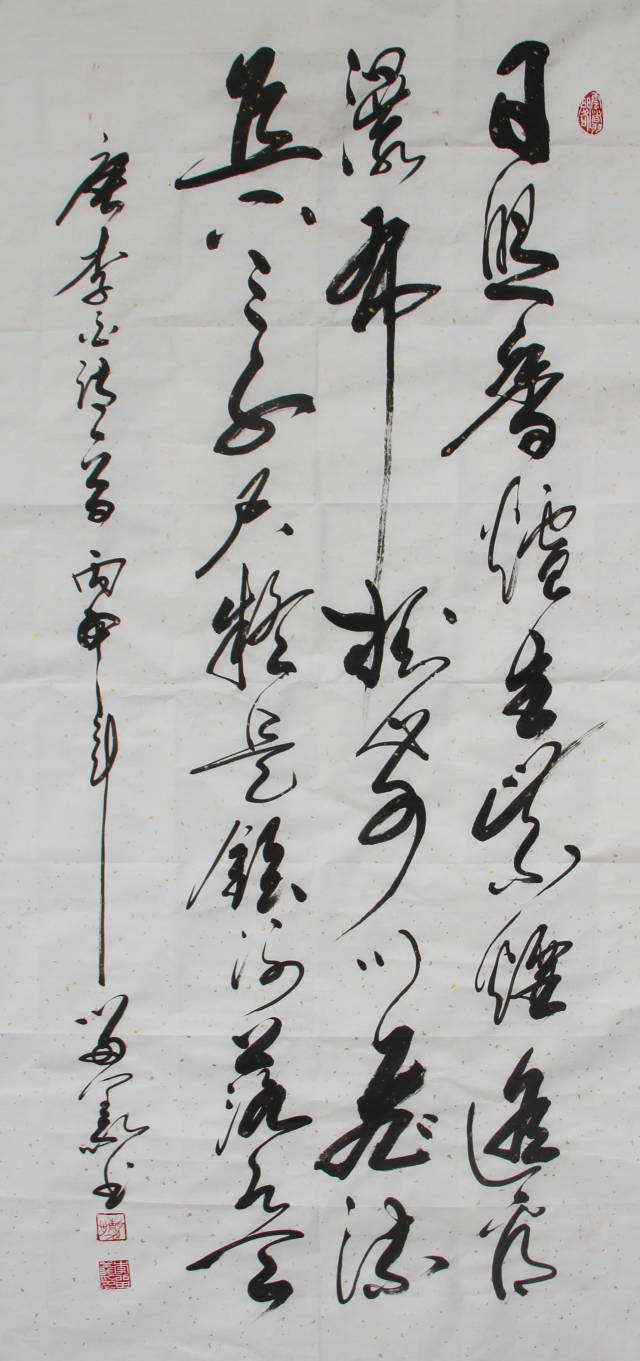 日照香爐生紫煙遙看
瀑布掛前川飛流
直下三千尺疑是銀河落九天
唐李白詩一首丙申年書